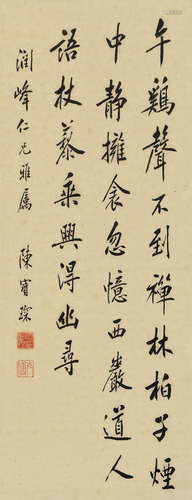 午鷄聲不到禪林柏子煙
中靜擁衾忽憶西巖道人
語杖藜乘興得幽尋
潤峰仁兄雅屬
陳寶琛